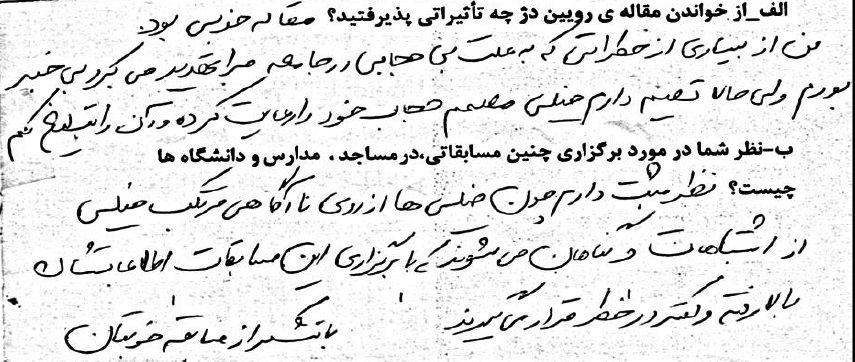 الف_از خواندن مقاله ی رویین دژ چه تأثیراتی پذیرفتید؟ مقاله خوبی بود.
من از بسیاری از خطراتی که به علت بی حجابی در جامعه مرا تهدید می کرد بی خبر
بودم ولی حالا تصمیم دارم خیلی مصمم حجاب خود را رعایت کرده و آن را تبلیغ کنم
ب-نظر شما در مورد برگزاری چنین مسابقاتی،در مساجد ، مدارس و دانشگاه ها
چیست؟ نظر مثبت دارم چون خیلی ها از روی ناآگاهی مرتکب خیلی
از اشتباهات و گناهان می شوند که با برگزاری این مسابقات اطلاعاتشان
بالا رفته و کمتر در خطر قرار می گیرند با تشکر از مسابقه خوبتان